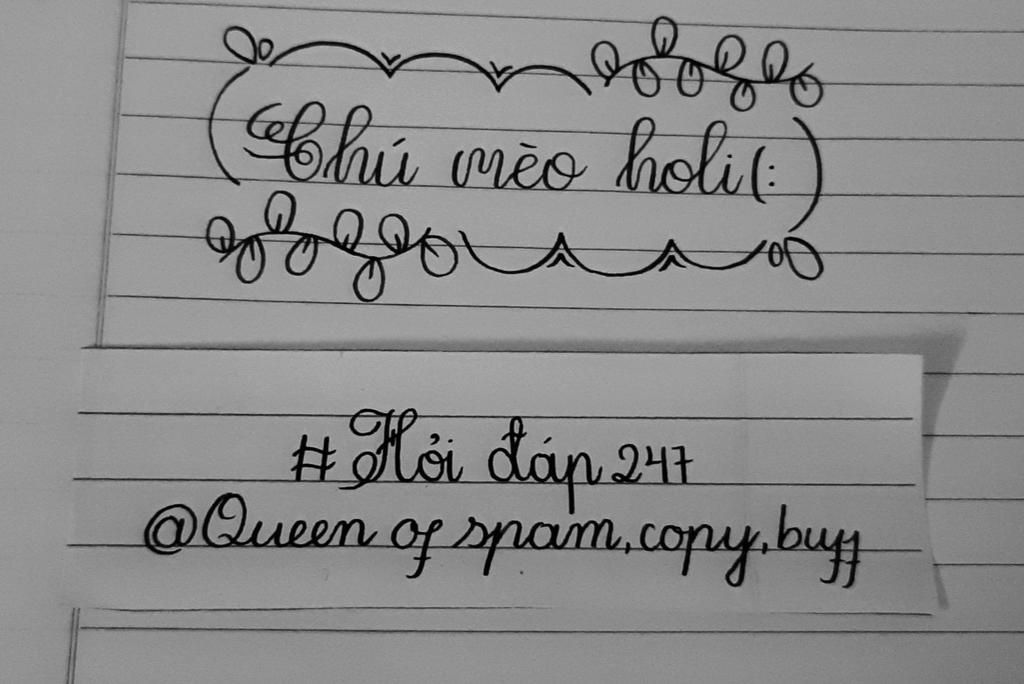 (Chú mèo holi(:)
#Hỏi đáp 247
@Queen of spam,copy,buff